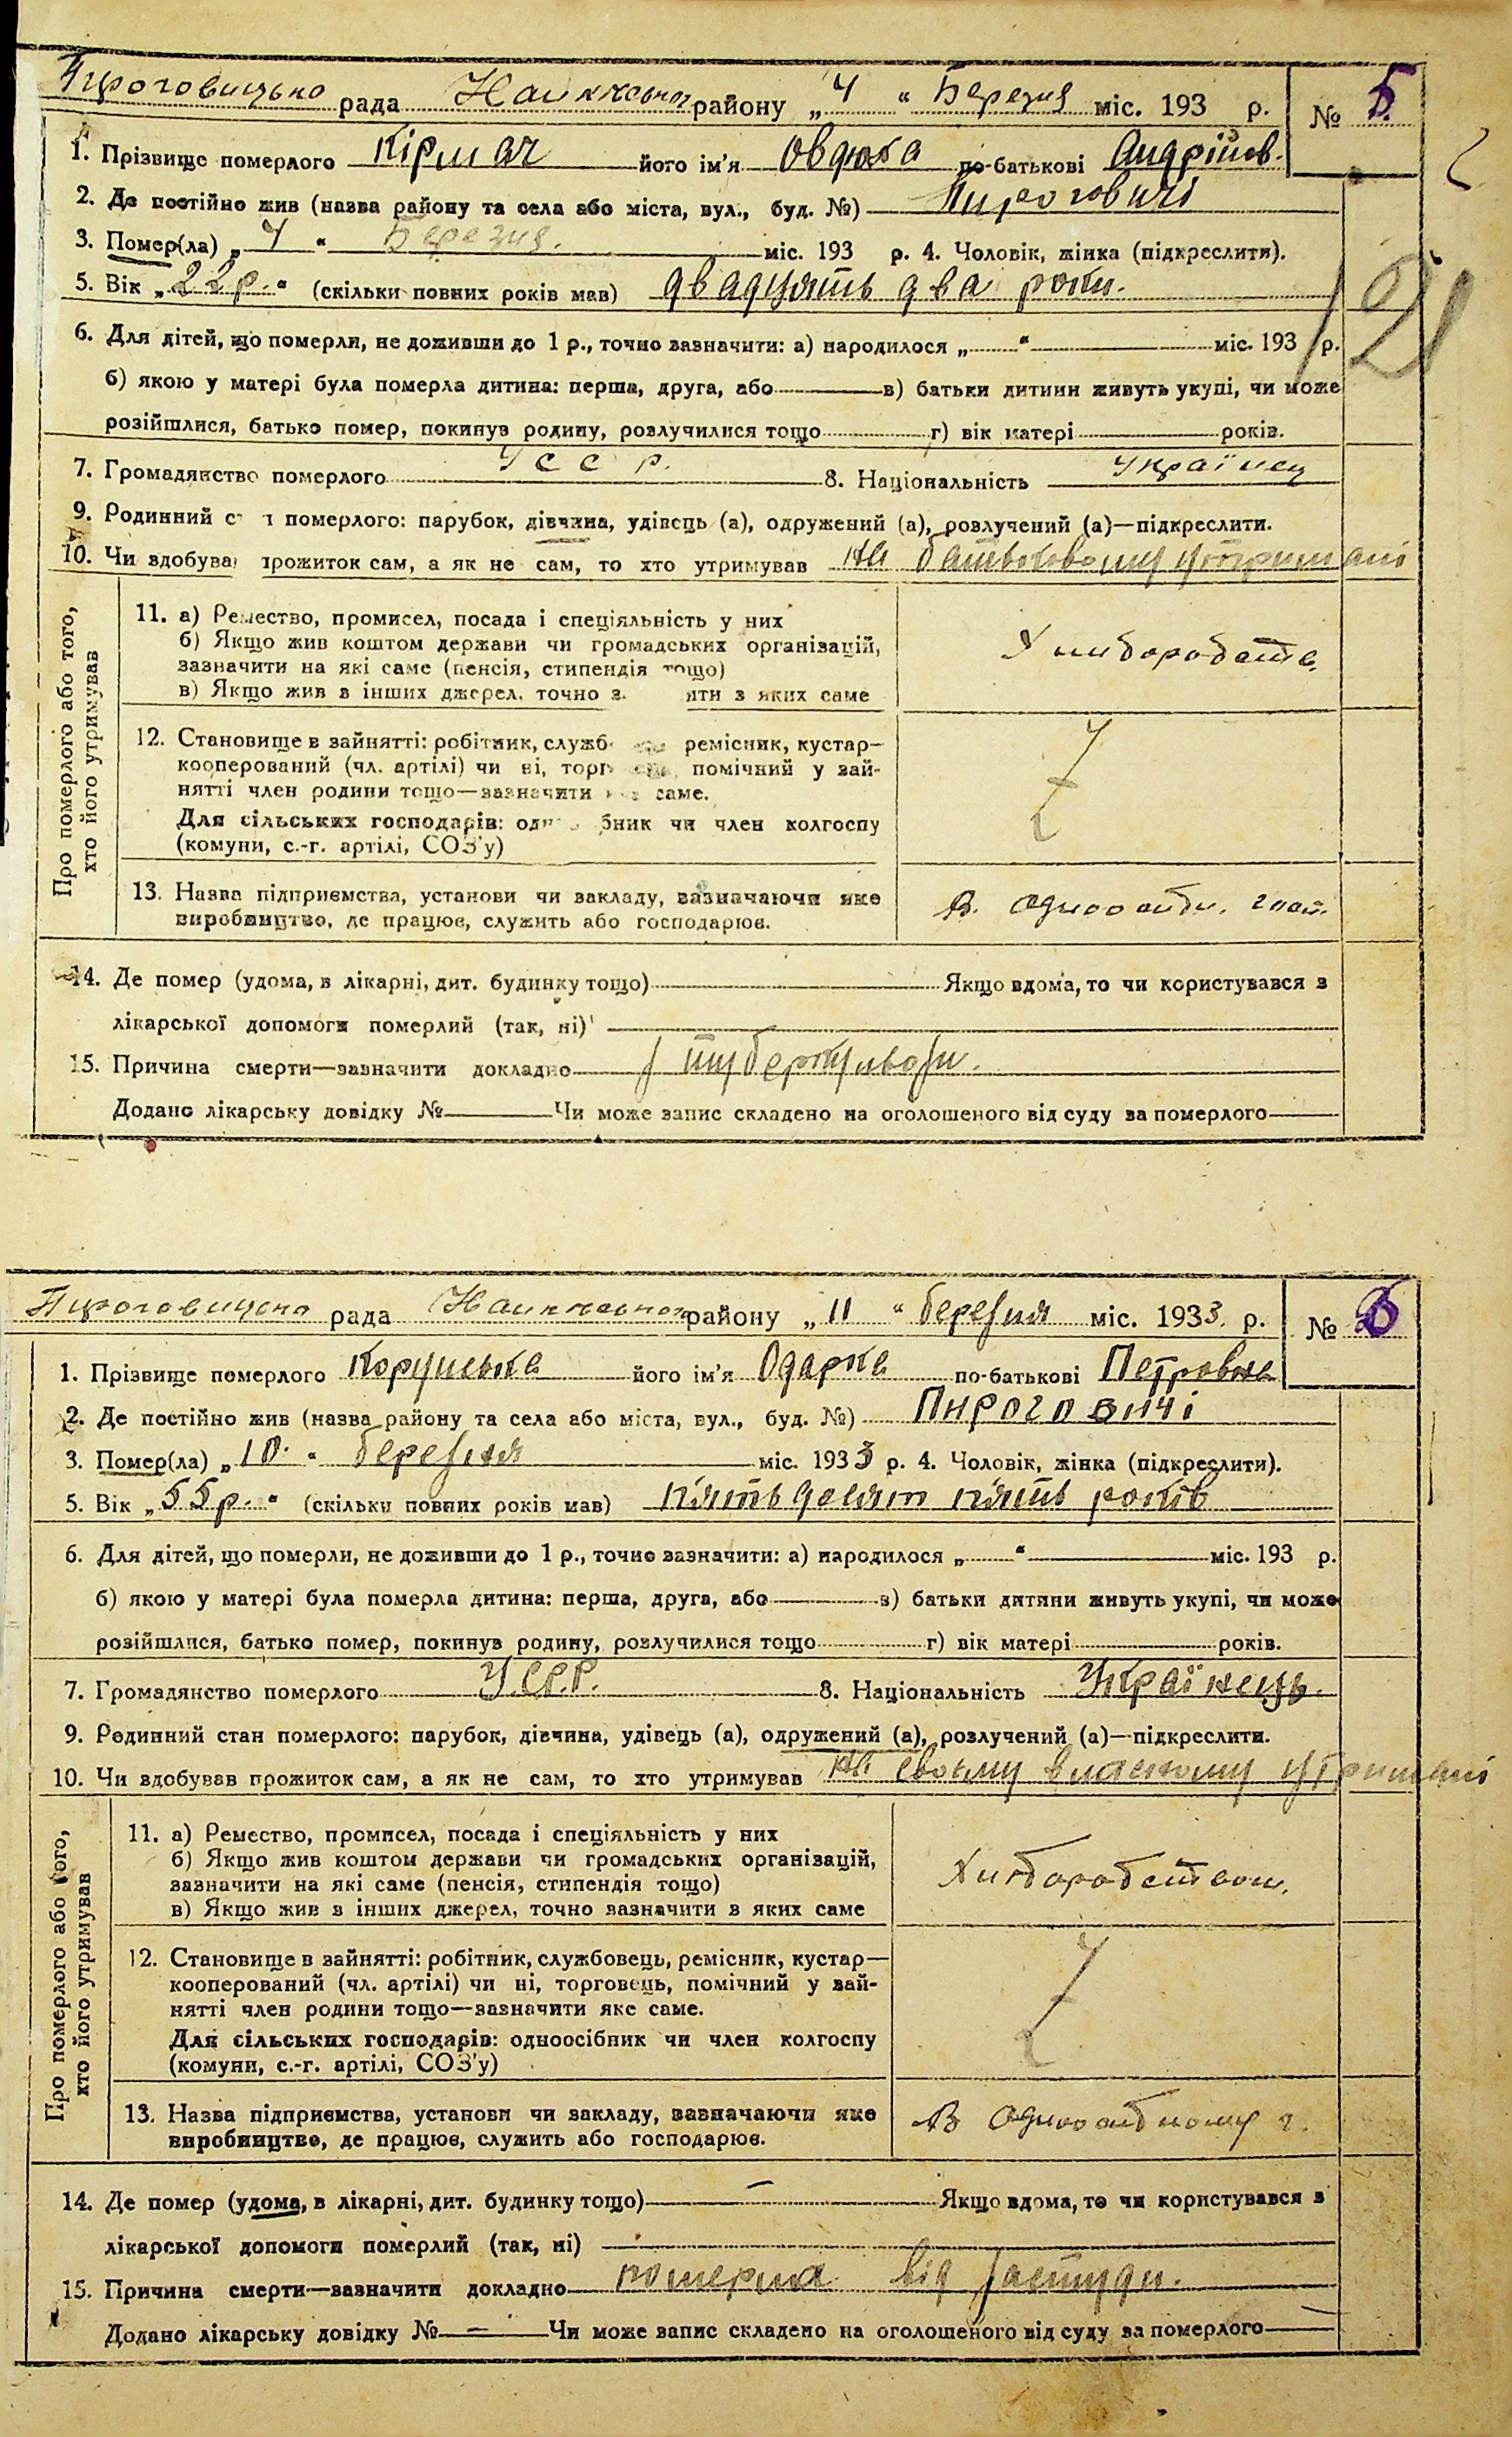 Пироговицько рада района району „ 4 “ Березня міс. 193 р. № 5
1. Прізвище померлого Кірмач його ім'я Овдюха по-батькові Андрійов.
2. Де постійно жив (назва району та села або міста, вул., буд. №) Пироговичі
3. Помер(ла) „ 4 “ Березня. міс. 193 р. 4. Чоловік, жінка (підкреслити).
5. Вік „ 22 р. “ (скільки повних років мав) двадцять два роки.
21
6. Для дітей, що померли, не доживши до 1 р., точно зазначити: а) народилося „ “ міс. 193 р.
б) якою у матері була померла дитина: перша, друга, або в) батьки дитини живуть укупі, чи може
розійшлися, батько помер, покинув родину, розлучилися тощо г) вік матері років.
7. Громадянство померлого УССР. 8. Національність Українец
9. Родинний с н померлого: парубок, дівчина, удівець (а), одружений (а), розлучений (а)—підкреслити.
10. Чи здобува прожиток сам, а як не сам, то хто утримував на батьковому утримані
Про померлого або того,
хто його утримував
11. а) Ремество, промисел, посада і спеціяльність у них
б) Якщо жив коштом держави чи громадських організацій,
зазначити на які саме (пенсія, стипендія тощо)
в) Якщо жив з інших джерел, точно з ити з яких саме
Хліборобств.
12. Становище в зайнятті: робітник, служб ремісник, кустар—
кооперований (чл. артілі) чи ні, торг помічний у зай-
нятті член родини тощо—зазначити саме.
Для сільських господарів: од бник чи член колгоспу
(комуни, с.-г. артілі, СОЗ'у)
13. Назва підприємства, установи чи закладу, зазначаючи яке
виробництво, де працює, служить або господарює.
В. одноосібн. госп.
14. Де помер (удома, в лікарні, дит. будинку тощо) Якщо вдома, то чи користувався з
лікарської допомоги померлий (так, ні)
15. Причина смерти—зазначити докладно з туберкульози.
Додано лікарську довідку № Чи може запис складено на оголошеного від суду за померлого
Пироговицька рада району „ 11 “ березня міс. 1933. р. № 6
1. Прізвище померлого його ім'я Одарка по-батькові Петровна
2. Де постійно жив (назва району та села або міста, вул., буд. №) Пироговичі
3. Помер(ла) „ 10. “ березня міс. 1933 р. 4. Чоловік, жінка (підкреслити).
5. Вік „ 55 р. “ (скільки повних років мав) пятьдесят пять років
6. Для дітей, що померли, не доживши до 1 р., точно зазначити: а) народилося „ “ міс. 193 р.
б) якою у матері була померла дитина: перша, друга, або в) батьки дитини живуть укупі, чи може
розійшлися, батько помер, покинув родину, розлучилися тощо г) вік матері років.
7. Громадянство померлого У.С.Р.Р. 8. Національність Українець.
9. Родинний стан померлого: парубок, дівчина, удівець (а), одружений (а), розлучений (а)—підкреслити.
10. Чи здобував прожиток сам, а як не сам, то хто утримував на своьму власному утримані
Про померлого або того,
хто його утримував
11. а) Ремество, промисел, посада і спеціяльність у них
б) Якщо жив коштом держави чи громадських організацій,
зазначити на які саме (пенсія, стипендія тощо)
в) Якщо жив з інших джерел, точно зазначити з яких саме
Хліборобством.
12. Становище в зайнятті: робітник, службовець, ремісник, кустар—
кооперований (чл. артілі) чи ні, торговець, помічний у зай-
нятті член родини тощо—зазначити яке саме.
Для сільських господарів: одноосібник чи член колгоспу
(комуни, с.-г. артілі, СОЗ'у)
13. Назва підприємства, установи чи закладу, зазначаючи яке
виробництво, де працює, служить або господарює.
В одноосібному г.
14. Де помер (удома, в лікарні, дит. будинку тощо) — Якщо вдома, то чи користувався з
лікарської допомоги померлий (так, ні)
15. Причина смерти—зазначити докладно померла від застуди.
Додано лікарську довідку № — Чи може запис складено на оголошеного від суду за померлого —